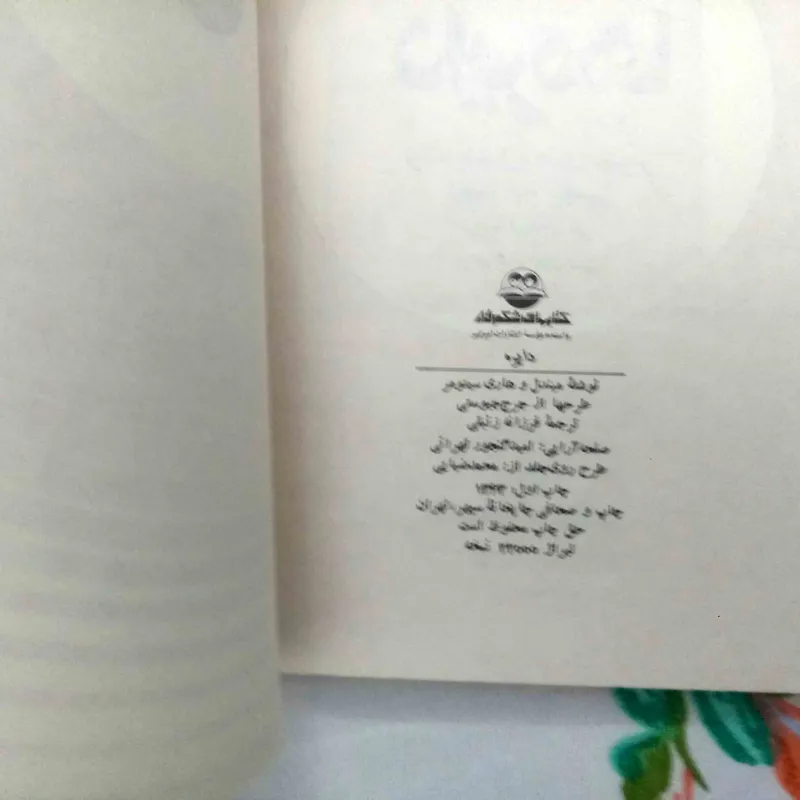 کتابهای شکوفه
وابسته به مؤسسهٔ انتشارات امیرکبیر
دایره
نوشتهٔ میندل و هاری سیتومر
طرحها از جرج جیوستی
ترجمهٔ فرزانه زنبقی
صفحه‌آرایی: امید گنجور ایرانی
طرح روی‌جلد از: محمد ضیایی
چاپ اول: ۱۳۶۳
چاپ و صحافی چاپخانهٔ سپهر، تهران
حق چاپ محفوظ است
تیراژ ۲۲۰۰۰ نسخه